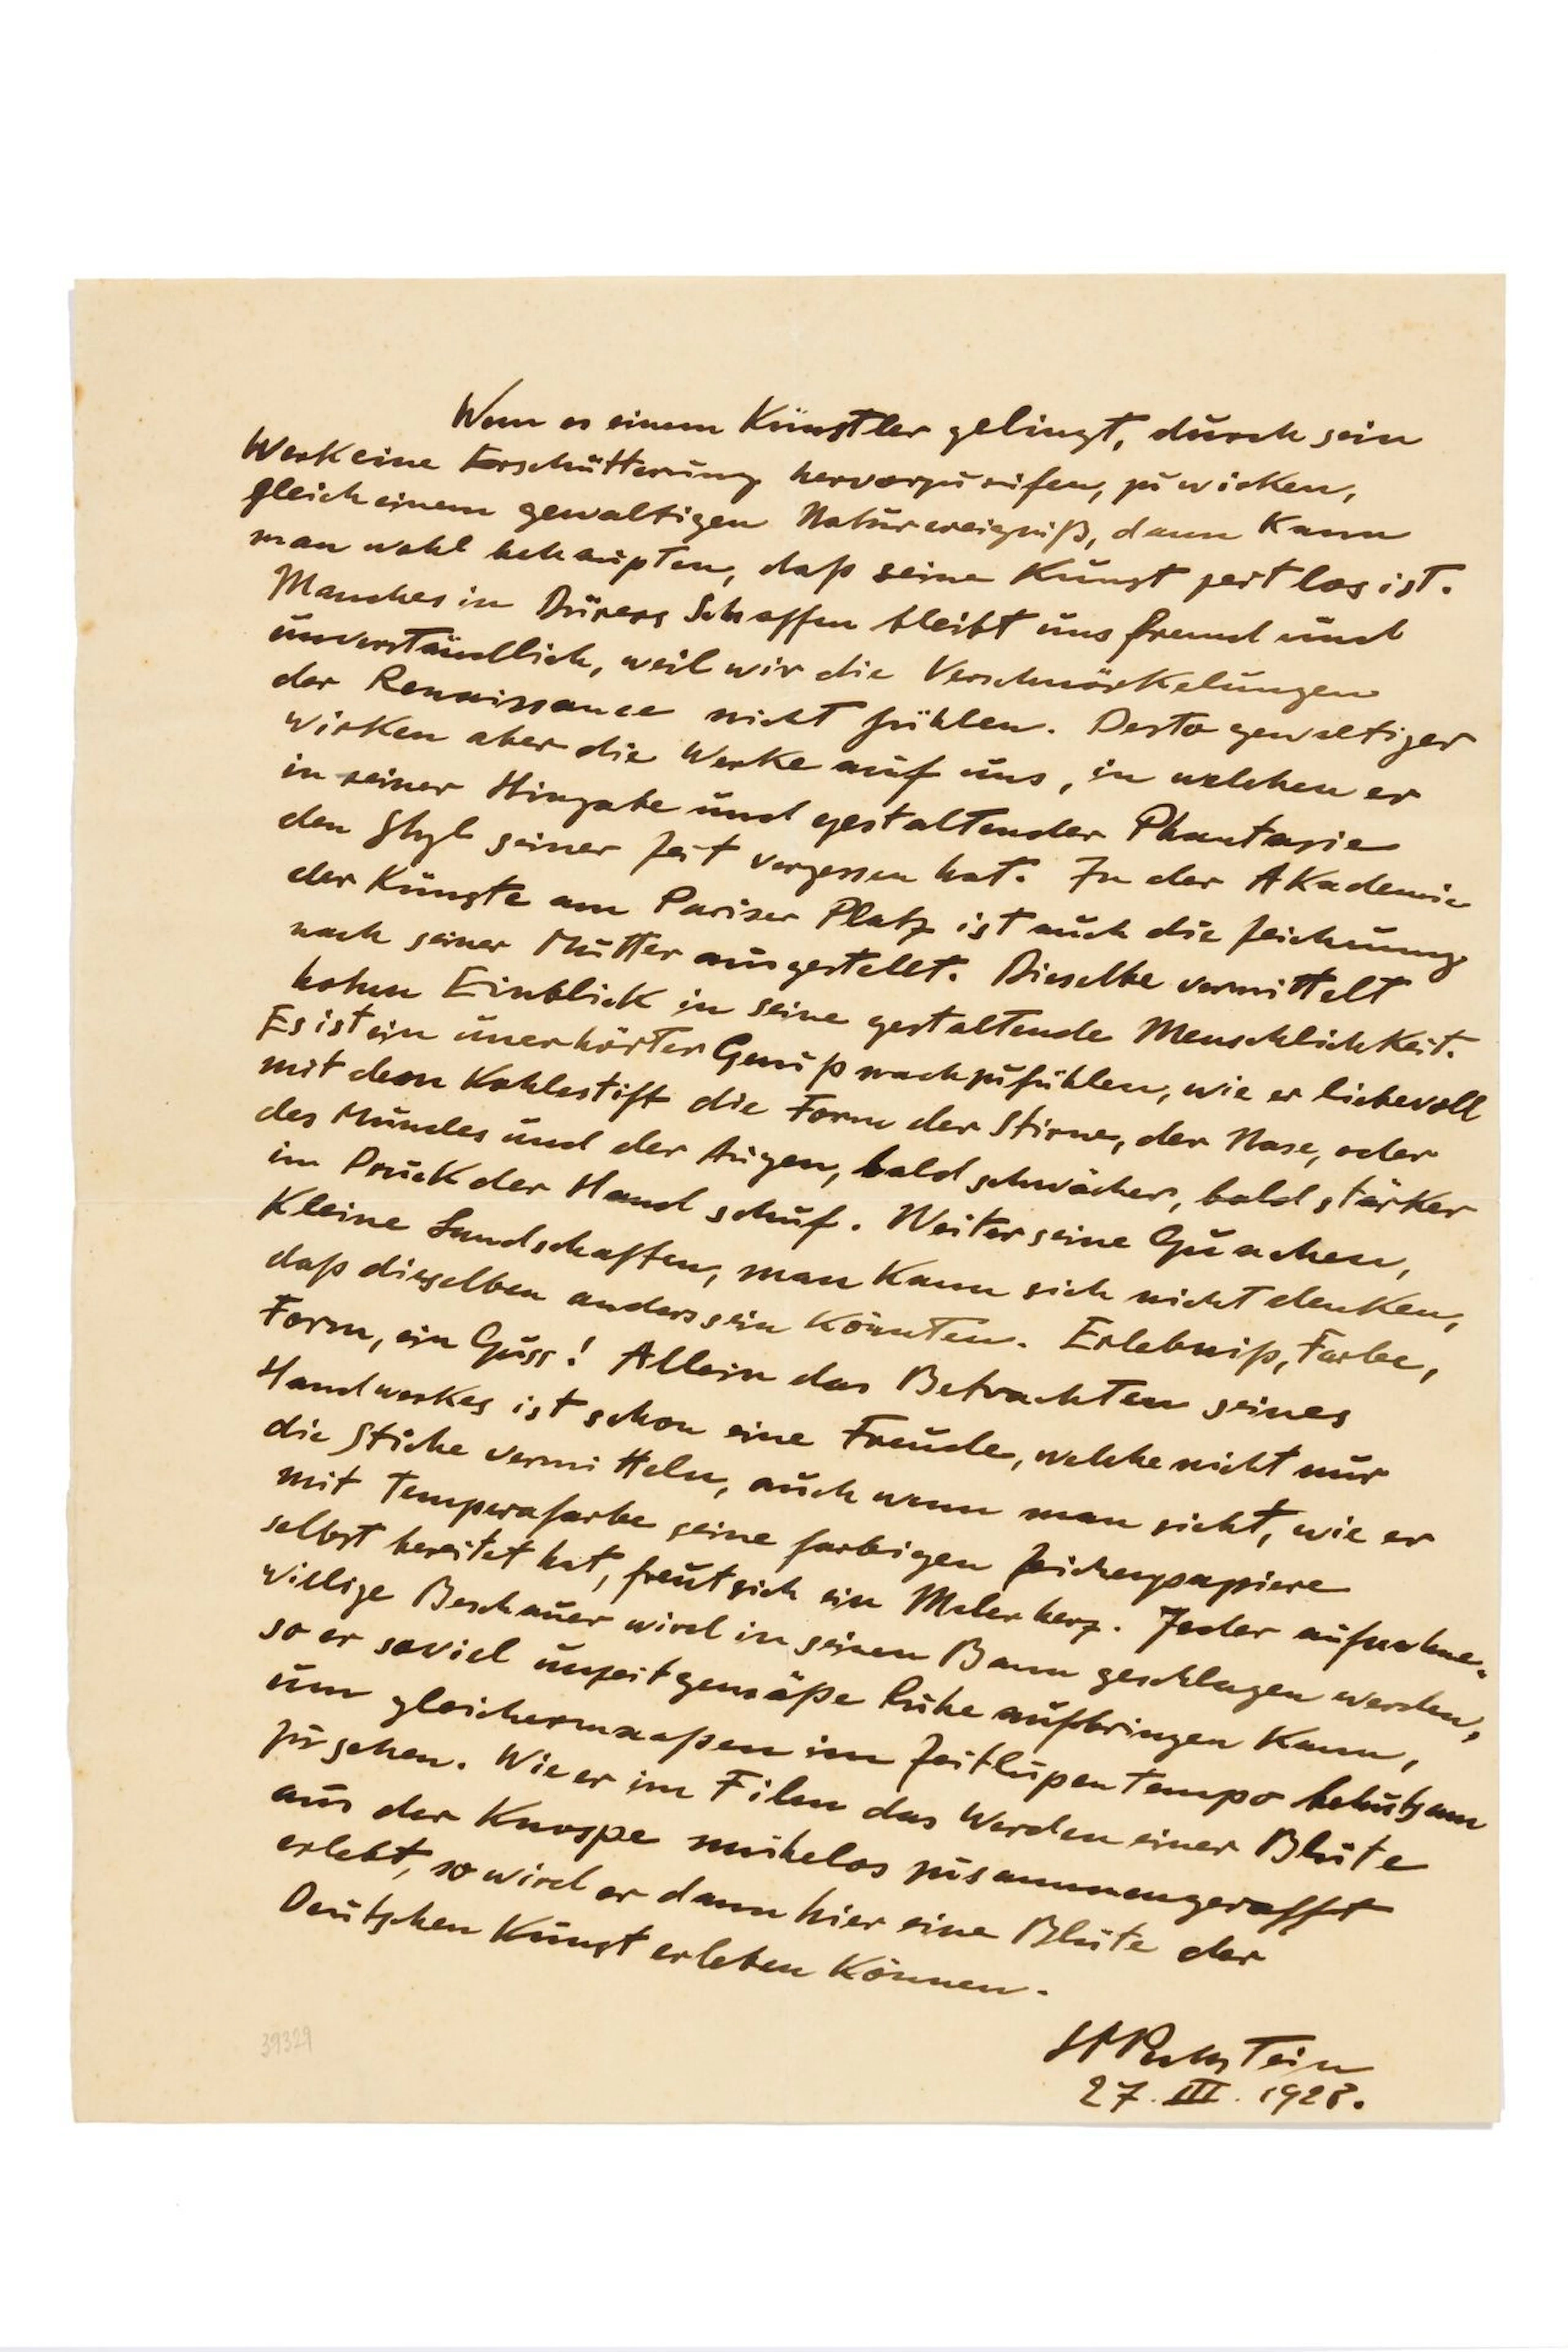 Wenn es einem Künstler gelingt, durch sein
Werk eine Erschütterung hervorzurufen, zu wirken,
gleich einem gewaltigen Naturereigniß, dann kann
man wohl behaupten, daß seine Kunst zeitlos ist.
Manches in Dürers Schaffen bleibt uns fremd und
unverständlich, weil wir die Verschnörkelungen
der Renaissance nicht fühlen. Desto gewaltiger
wirken aber die Werke auf uns, in welchen er
in seiner Hingabe und gestaltender Phantasie
den Styl seiner Zeit vergessen hat. In der Akademie
der Künste am Pariser Platz ist auch die Zeichnung
nach seiner Mutter ausgestellt. Dieselbe vermittelt
hohen Einblick in seine gestaltende Menschlichkeit.
Es ist ein unerhörter Genuß nachzufühlen, wie er liebevoll
mit dem Kohlestift die Form der Stirne, der Nase, oder
des Mundes und der Augen, bald schwächer, bald stärker
im Druck der Hand schuf. Weiter seine Guachen,
kleine Landschaften, man kann sich nicht denken,
daß dieselben anders sein könnten. Erlebniß, Farbe,
Form, ein Guss! Allein das Betrachten seines
Handwerkes ist schon eine Freude, welche nicht nur
die Stiche vermitteln, auch wenn man sieht, wie er
mit Temperafarbe seine farbigen Zeichenpapiere
selbst bereitet hat, freut sich ein Malerherz. Jeder aufnahme-
willige Beschauer wird in seinen Bann geschlagen werden,
so er soviel unzeitgemäße Ruhe aufbringen kann,
um gleichermaaßen im Zeitlupentempo behutsam
zu sehen. Wie er im Film das Werden einer Blüte
aus der Knospe mühelos zusammengerafft
erlebt, so wird er dann hier eine Blüte der
Deutschen Kunst erleben können.
HMPechstein
27. III. 1928.
39329